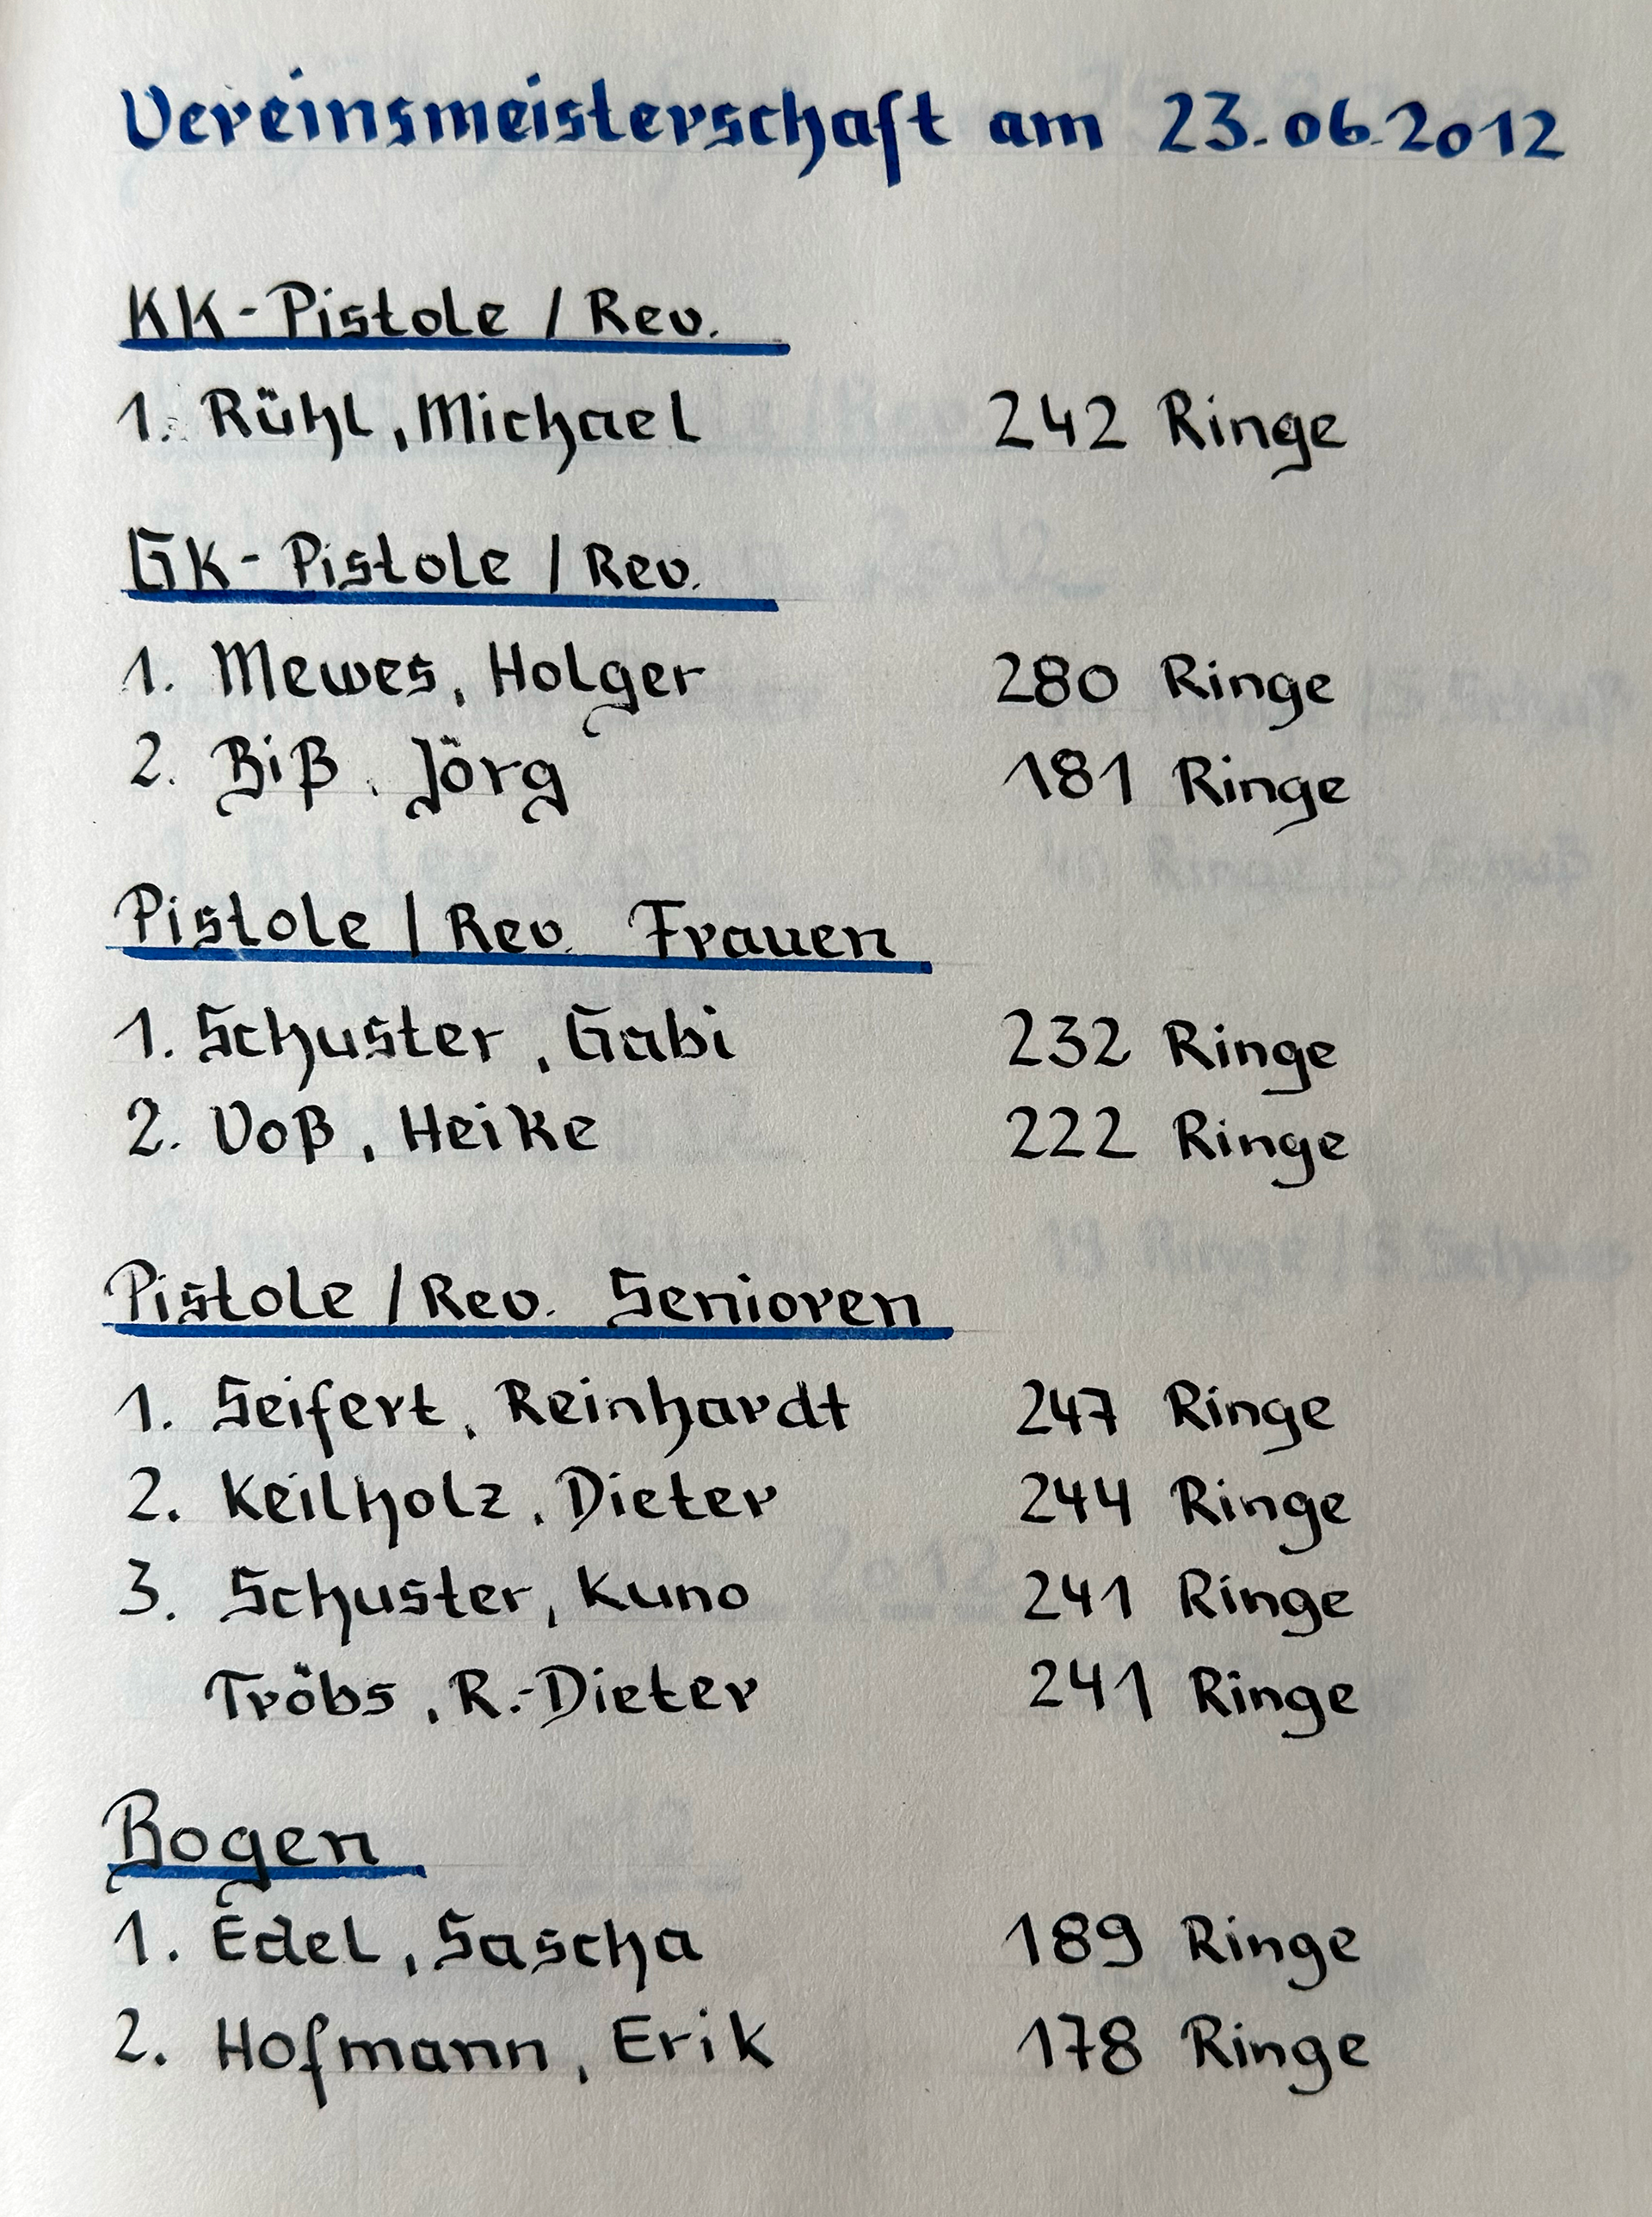 Vereinsmeisterschaft am 23.06.2012
KK-Pistole / Rev.
1. Rühl, Michael 242 Ringe
GK-Pistole / Rev.
1. Mewes, Holger 280 Ringe
2. Biß, Jörg 181 Ringe
Pistole / Rev. Frauen
1. Schuster, Gabi 232 Ringe
2. Voß, Heike 222 Ringe
Pistole / Rev. Senioren
1. Seifert, Reinhardt 247 Ringe
2. Keilholz, Dieter 244 Ringe
3. Schuster, Kuno 241 Ringe
Tröbs, R.-Dieter 241 Ringe
Bogen
1. Edel, Sascha 189 Ringe
2. Hofmann, Erik 178 Ringe